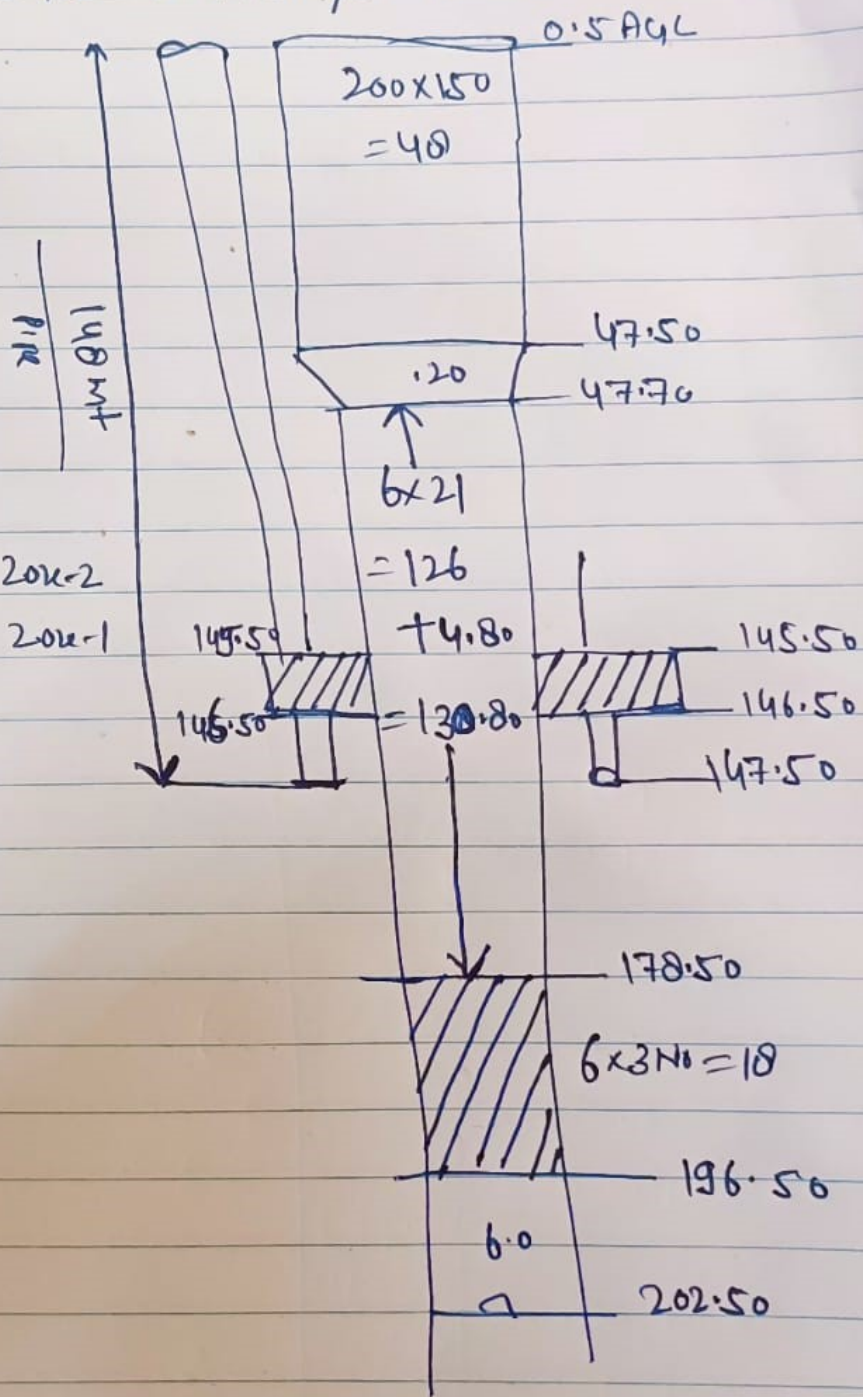 0.5 AGL
200x150
=48
47.50
.20
47.70
148 mt
PIPE
6x21
=126
+4.80
=130.80
Zone-2
Zone-1
145.50
146.50
145.50
146.50
147.50
178.50
6x3No=18
196.50
6.0
202.50